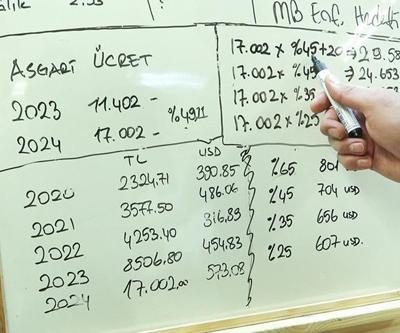 2.33
MB Enf. Hedefi
ASGARİ ÜCRET
2023 11.402 -
%49,11
2024 17.002 -
17.002 x %45+20 => 29.58
17.002 x %45 => 24.653
17.002 x %35
17.002 x %25
TL USD
2020 2324.71 390.85
2021 3577.50 486.06
2022 4253.40 316.83
2023 8506.80 454.83
2024 17.002,00 573.08
%65 801
%45 704 USD
%35 656 USD
%25 607 USD.